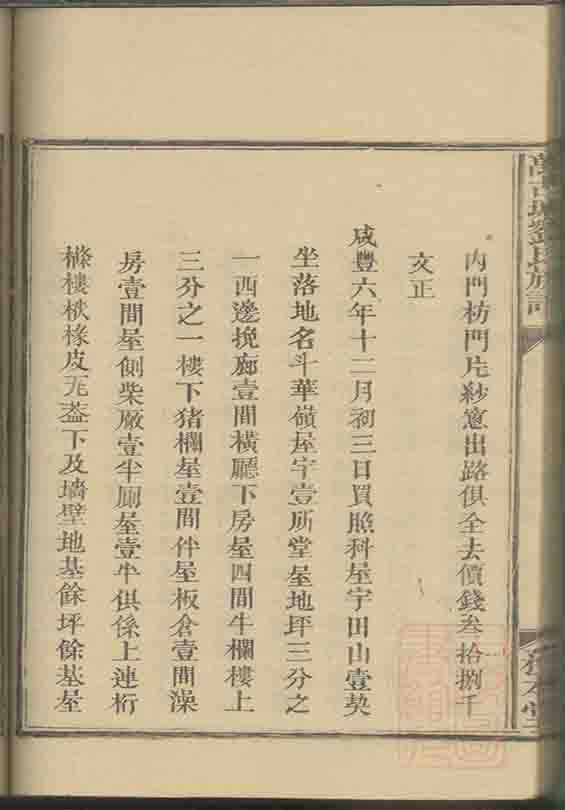 內門枋門片紗窓出路俱全去價錢叁拾捌千
文正
咸豐六年十二月初三日買照科屋宇田山壹契
坐落地名斗華嶺屋宇壹所堂屋地坪三分之
一西邊挽廊壹間橫廳下房屋四間牛欄樓上
三分之一樓下猪欄屋壹間伴屋板倉壹間澡
房壹間屋側柴廠壹半厠屋壹半俱係上連桁
條樓栿椽皮瓦葢下及墻壁地基餘坪餘基屋